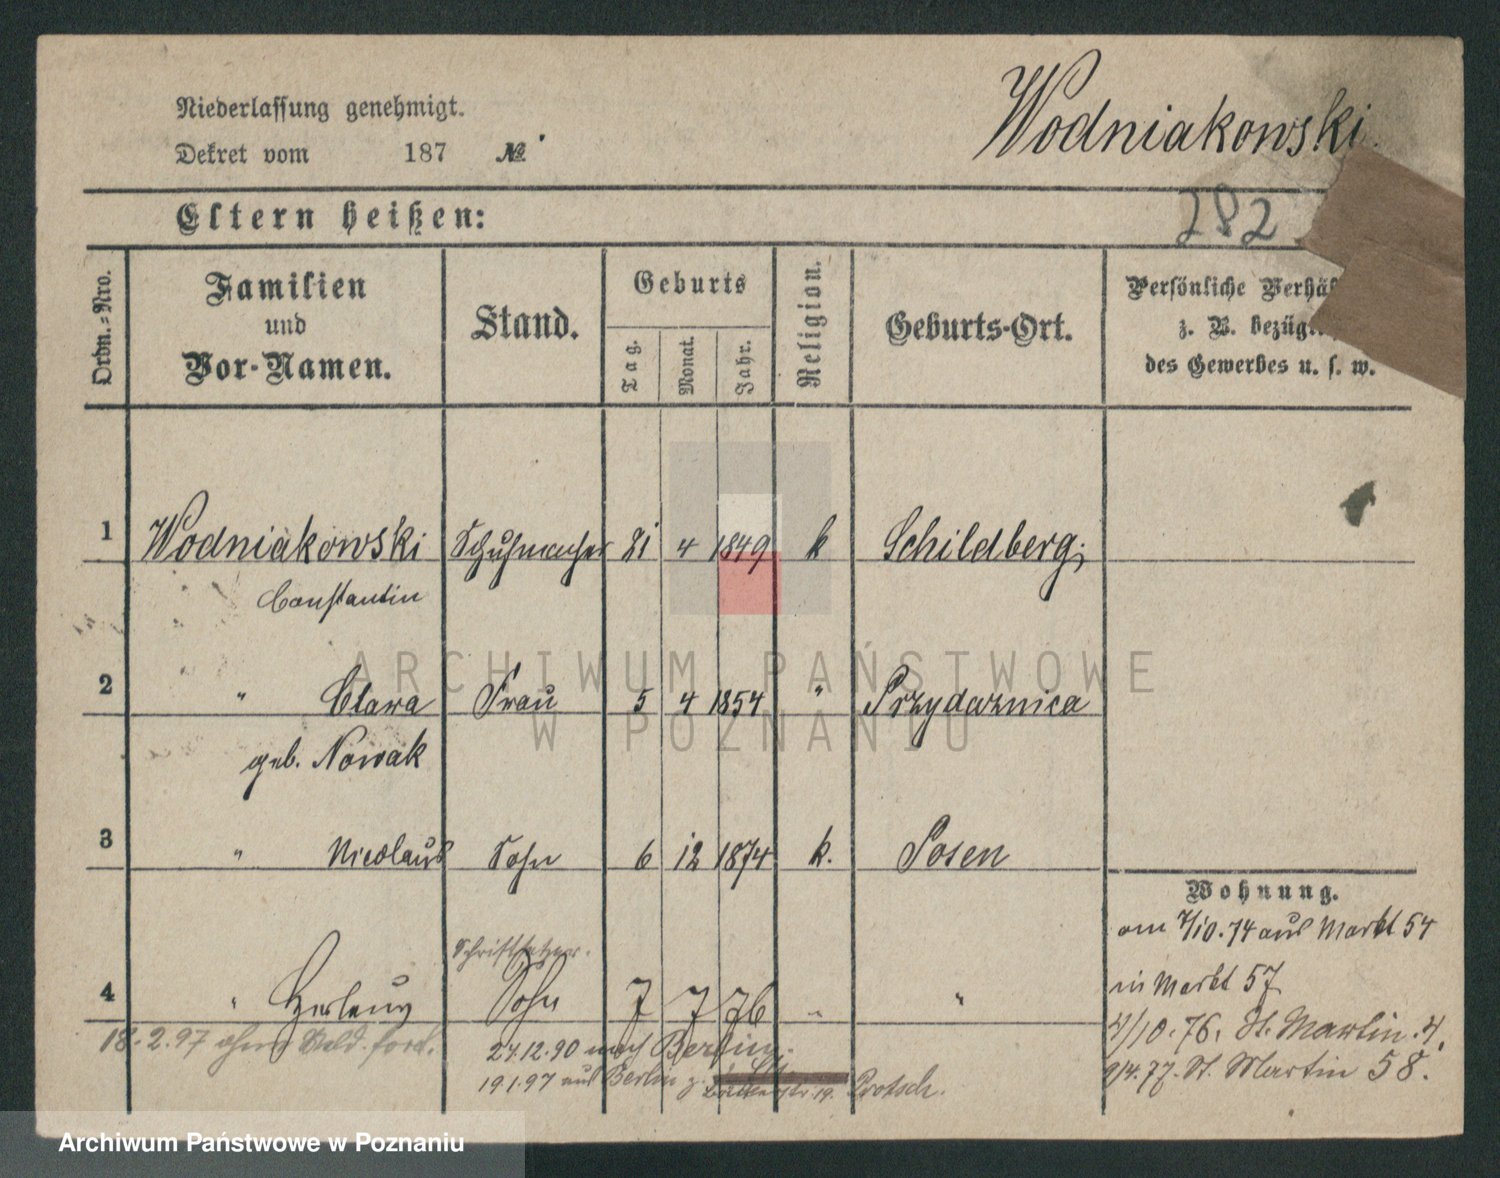 Niederlassung genehmigt.
Wodniakowski.
Dekret vom 187 №
282
Eltern heißen:
Ordn.-Nro.
Familien und Vor-Namen.
Stand.
Geburts
Tag.
Monat.
Jahr.
Religion.
Geburts-Ort.
Persönliche
z. B.
des Gewerbes u. s. w.
1 Wodniakowski Schuhmacher 21 4 1849 k Schildberg
Constantin
2 " Clara Frau 5 4 1854 " Przydaznica
geb. Nowak
3 " Nicolaus Sohn 6 12 1874 k. Posen
Wohnung.
am 7/10.74 aus Markt 54
in Markt 57
Schriftsetzer.
4 " Sohn 7 7 76 " "
4/10.76. St. Martin 4.
18.2.97 ohne
24.12.90 nach Berlin.
9/4.77. St. Martin 58.
19.1.97 aus Berlin z. Protsch.
ARCHIWUM PAŃSTWOWE
W POZNANIU
Archiwum Państwowe w Poznaniu